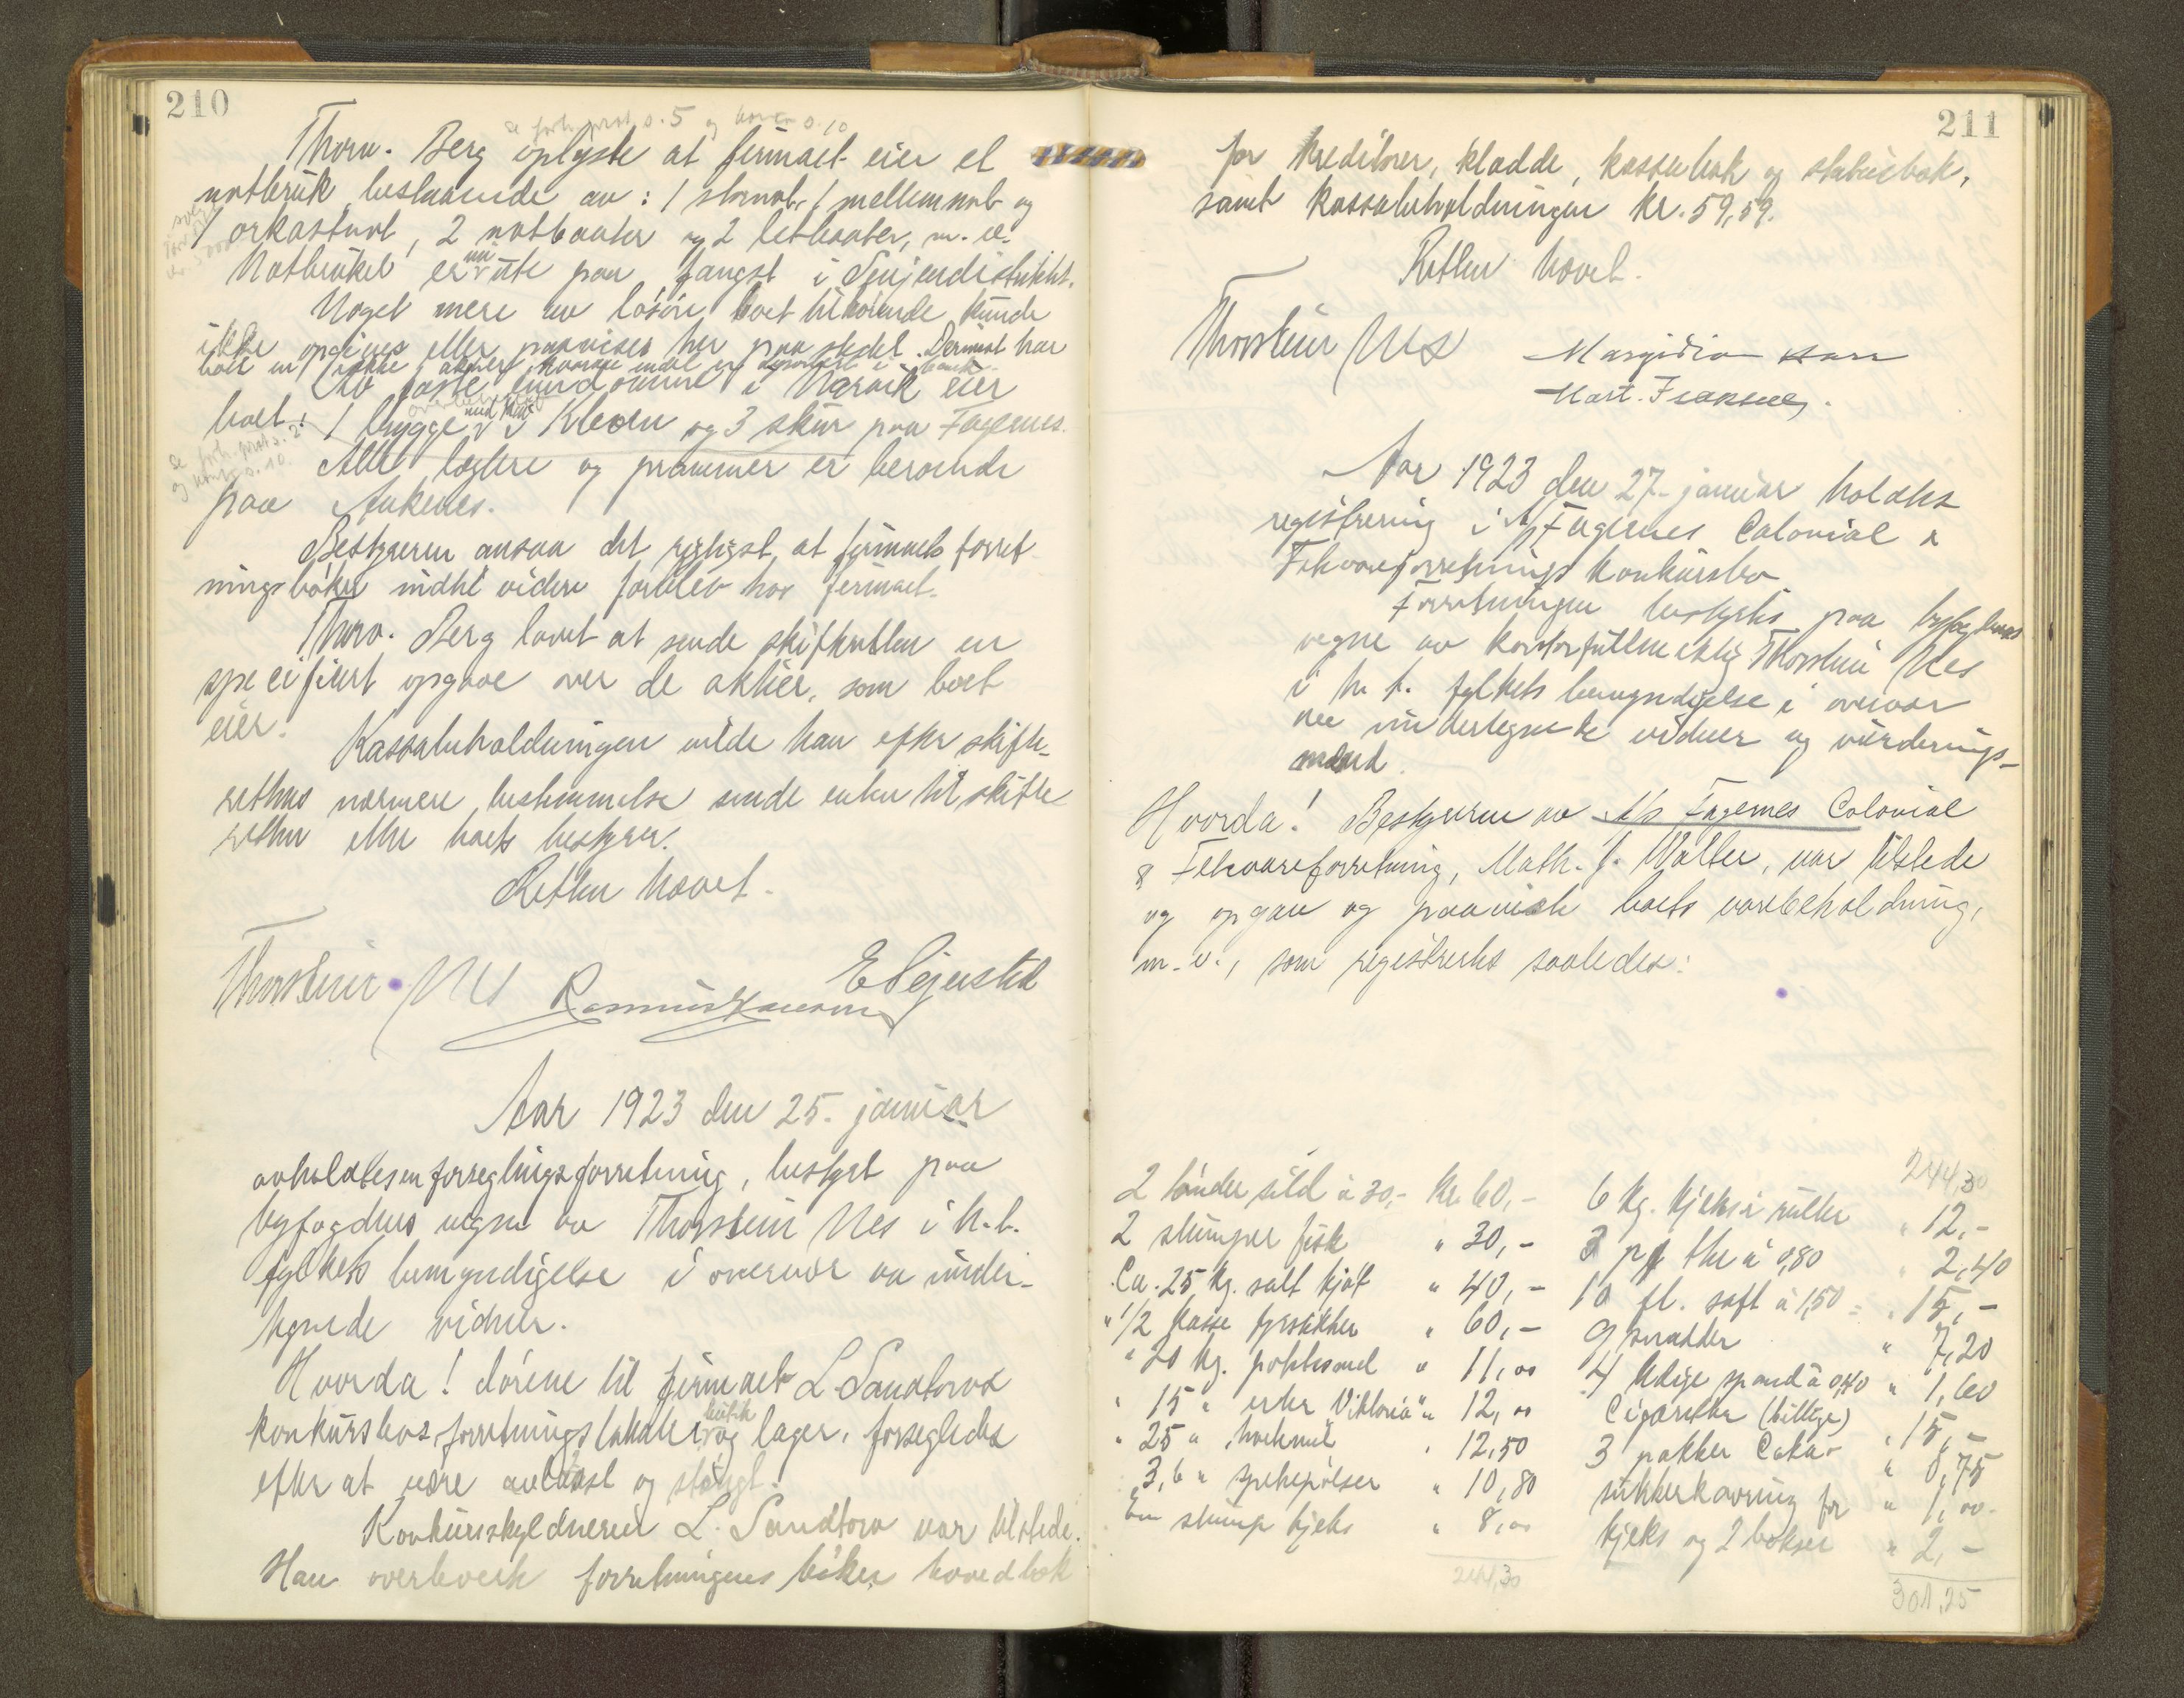 210
se forh. prot. s. 5 og s. 10
Thorv. Berg oplyste at firmaet eier et
notbruk bestaaende av: 1 stornot, 1 mellemnot og
1 orkastnot, 2 notbaater og 2 letbaater, m.v.
Notbruket er nu ute paa fangst i Senjendistriktet.
Noget mere av løsøre boet tilhørende kunde
ikke opgives eller paavises her paa stedet. Derimot har
boet en række aktier, hvorav endel er deponert i bank.
Av faste eiendomme i Narvik eier
boet: 1 brygge i Kleven og 3 skur paa Fagernes.
se forh. prot. s. 2
og s. 10.
Alle lægtere og prammer er beroende
paa Ankenes.
Bestyreren ansaa det rigtigst at firmaets forret
ningsbøker indtil videre forblev hos firmaet.
Thorv. Berg lovet at sende skifteretten en
specifisert opgave over de aktier, som boet
eier.
Kassabeholdningen vilde han efter skifte-
rettens nærmere bestemmelse sende enten til skifte
retten eller boets bestyrer.
Retten hævet.
Thorstein Nes Rasmus Hansen E Pejersted
Aar 1923 den 25. januar
avholdtes en forseglingsforretning, bestyrt paa
byfogdens vegne av Thorstein Nes i h.t.
fylkets bemyndigelse i overvær av under-
tegnede vidner.
Hvorda! Dørene til firmaet L. Sandtorvs
konkursbos forretningslokaler, butik og lager, forsegledes
efter at være avlaast og stængt.
Konkursskyldneren L. Sandtorv var tilstede.
Han overleverte forretningens bøker hovedbok
211
for kreditorer, kladde, kassabok og statusbok,
samt kassabeholdningen kr. 59,59.
Retten hævet.
Thorstein Nes
Mart. Fransen.
Aar 1923 den 27. januar holdtes
registrering i A/S Fagernes Colonial &
Fetevareforretnings konkursbo
Forretningen bestyrtes paa byfogdens
vegne av kontorfuldmektig Thorstein Nes
i h.t. fylkets bemyndigelse i overvær
av undertegnede vidner og vurderings-
mænd.
Hvorda! Bestyreren av A/S Fagernes Colonial
& Fetevareforretning, Math. J. Walter, var tilstede
og opgav og paaviste boets varebeholdning,
m.v., som registrertes saaledes:
2 tønder sild à 30,- kr. 60,-
2 slumper fisk " 30,-
Ca. 25 kg. salt kjøt " 40,-
" 1/2 kasse fyrstikker " 60,-
" 20 kg. potetmel " 11,00
" 15 " erter Viktoria " 12,00
" 25 " havremel " 12,50
3,6 " spekepølser " 10,80
En slump kjeks " 8,00
244,30
244,30
6 kg. kjeks i ruller " 12,-
3 pk the à 0,80 " 2,40
10 fl. saft à 1,50 = " 15,-
9 snadder " 7,20
4 ledige spand à 0,40 " 1,60
Cigaretter (billige) " 15,-
3 pakker Caka- " 0,75
sukkerkavring for " 1,00.
kjeks og 2 bokser " 2,-
301,25